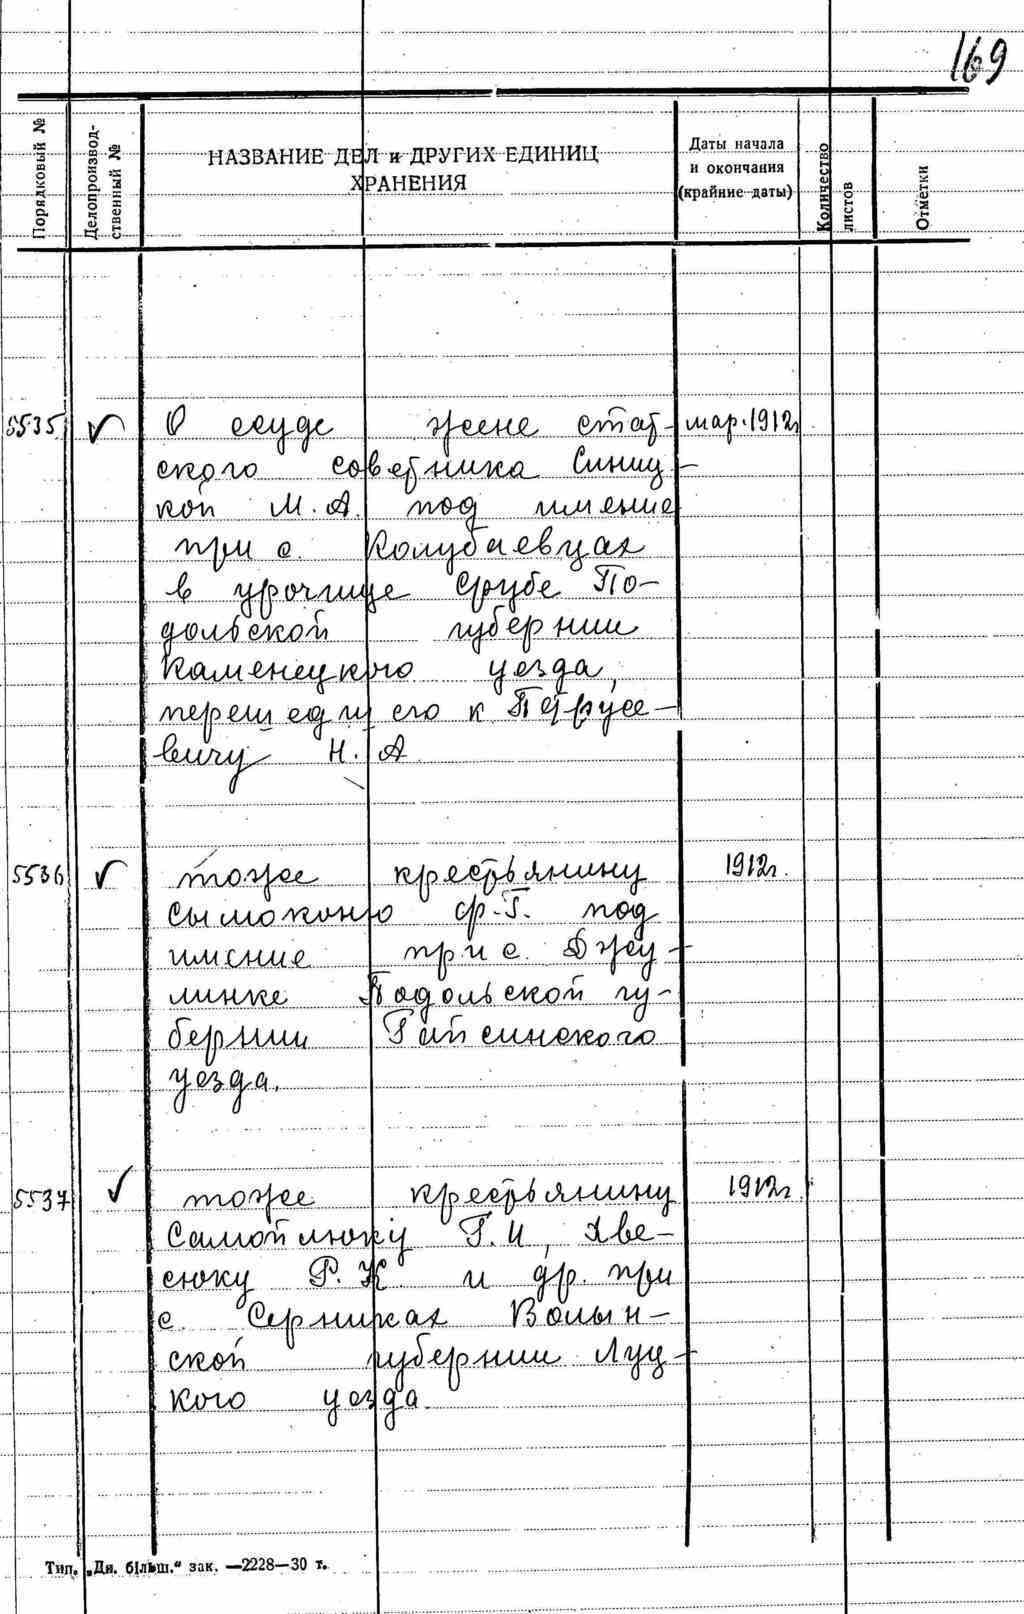 169
Порядковый №
Делопроизвод-
ственный №
НАЗВАНИЕ ДЕЛ и ДРУГИХ ЕДИНИЦ
ХРАНЕНИЯ
Даты начала
и окончания
(крайние даты)
Количество
листов
Отметки
5535 ✓ О ссуде жене стат- мар. 1912г
ского советника Синиц-
кой М. А. под имение
при с. Колубаевцах
в урочище Срубе По-
дольской губернии
Каменецкого уезда,
перешедшего к Петрусе-
вичу Н. А
5536 ✓ тоже крестьянину 1912г.
Сымоконю Ф. Г. под
имение при с. Джу-
линке Подольской гу-
бернии Гайсинского
уезда.
5537 ✓ тоже крестьянину 1912г.
Самойлюку Г. И, Хве-
сюку Р. К. и др. при
с. Серниках Волын-
ской губернии Луц-
кого уезда.
Тип. „Дн. більш.“ зак. —2228—30 т.